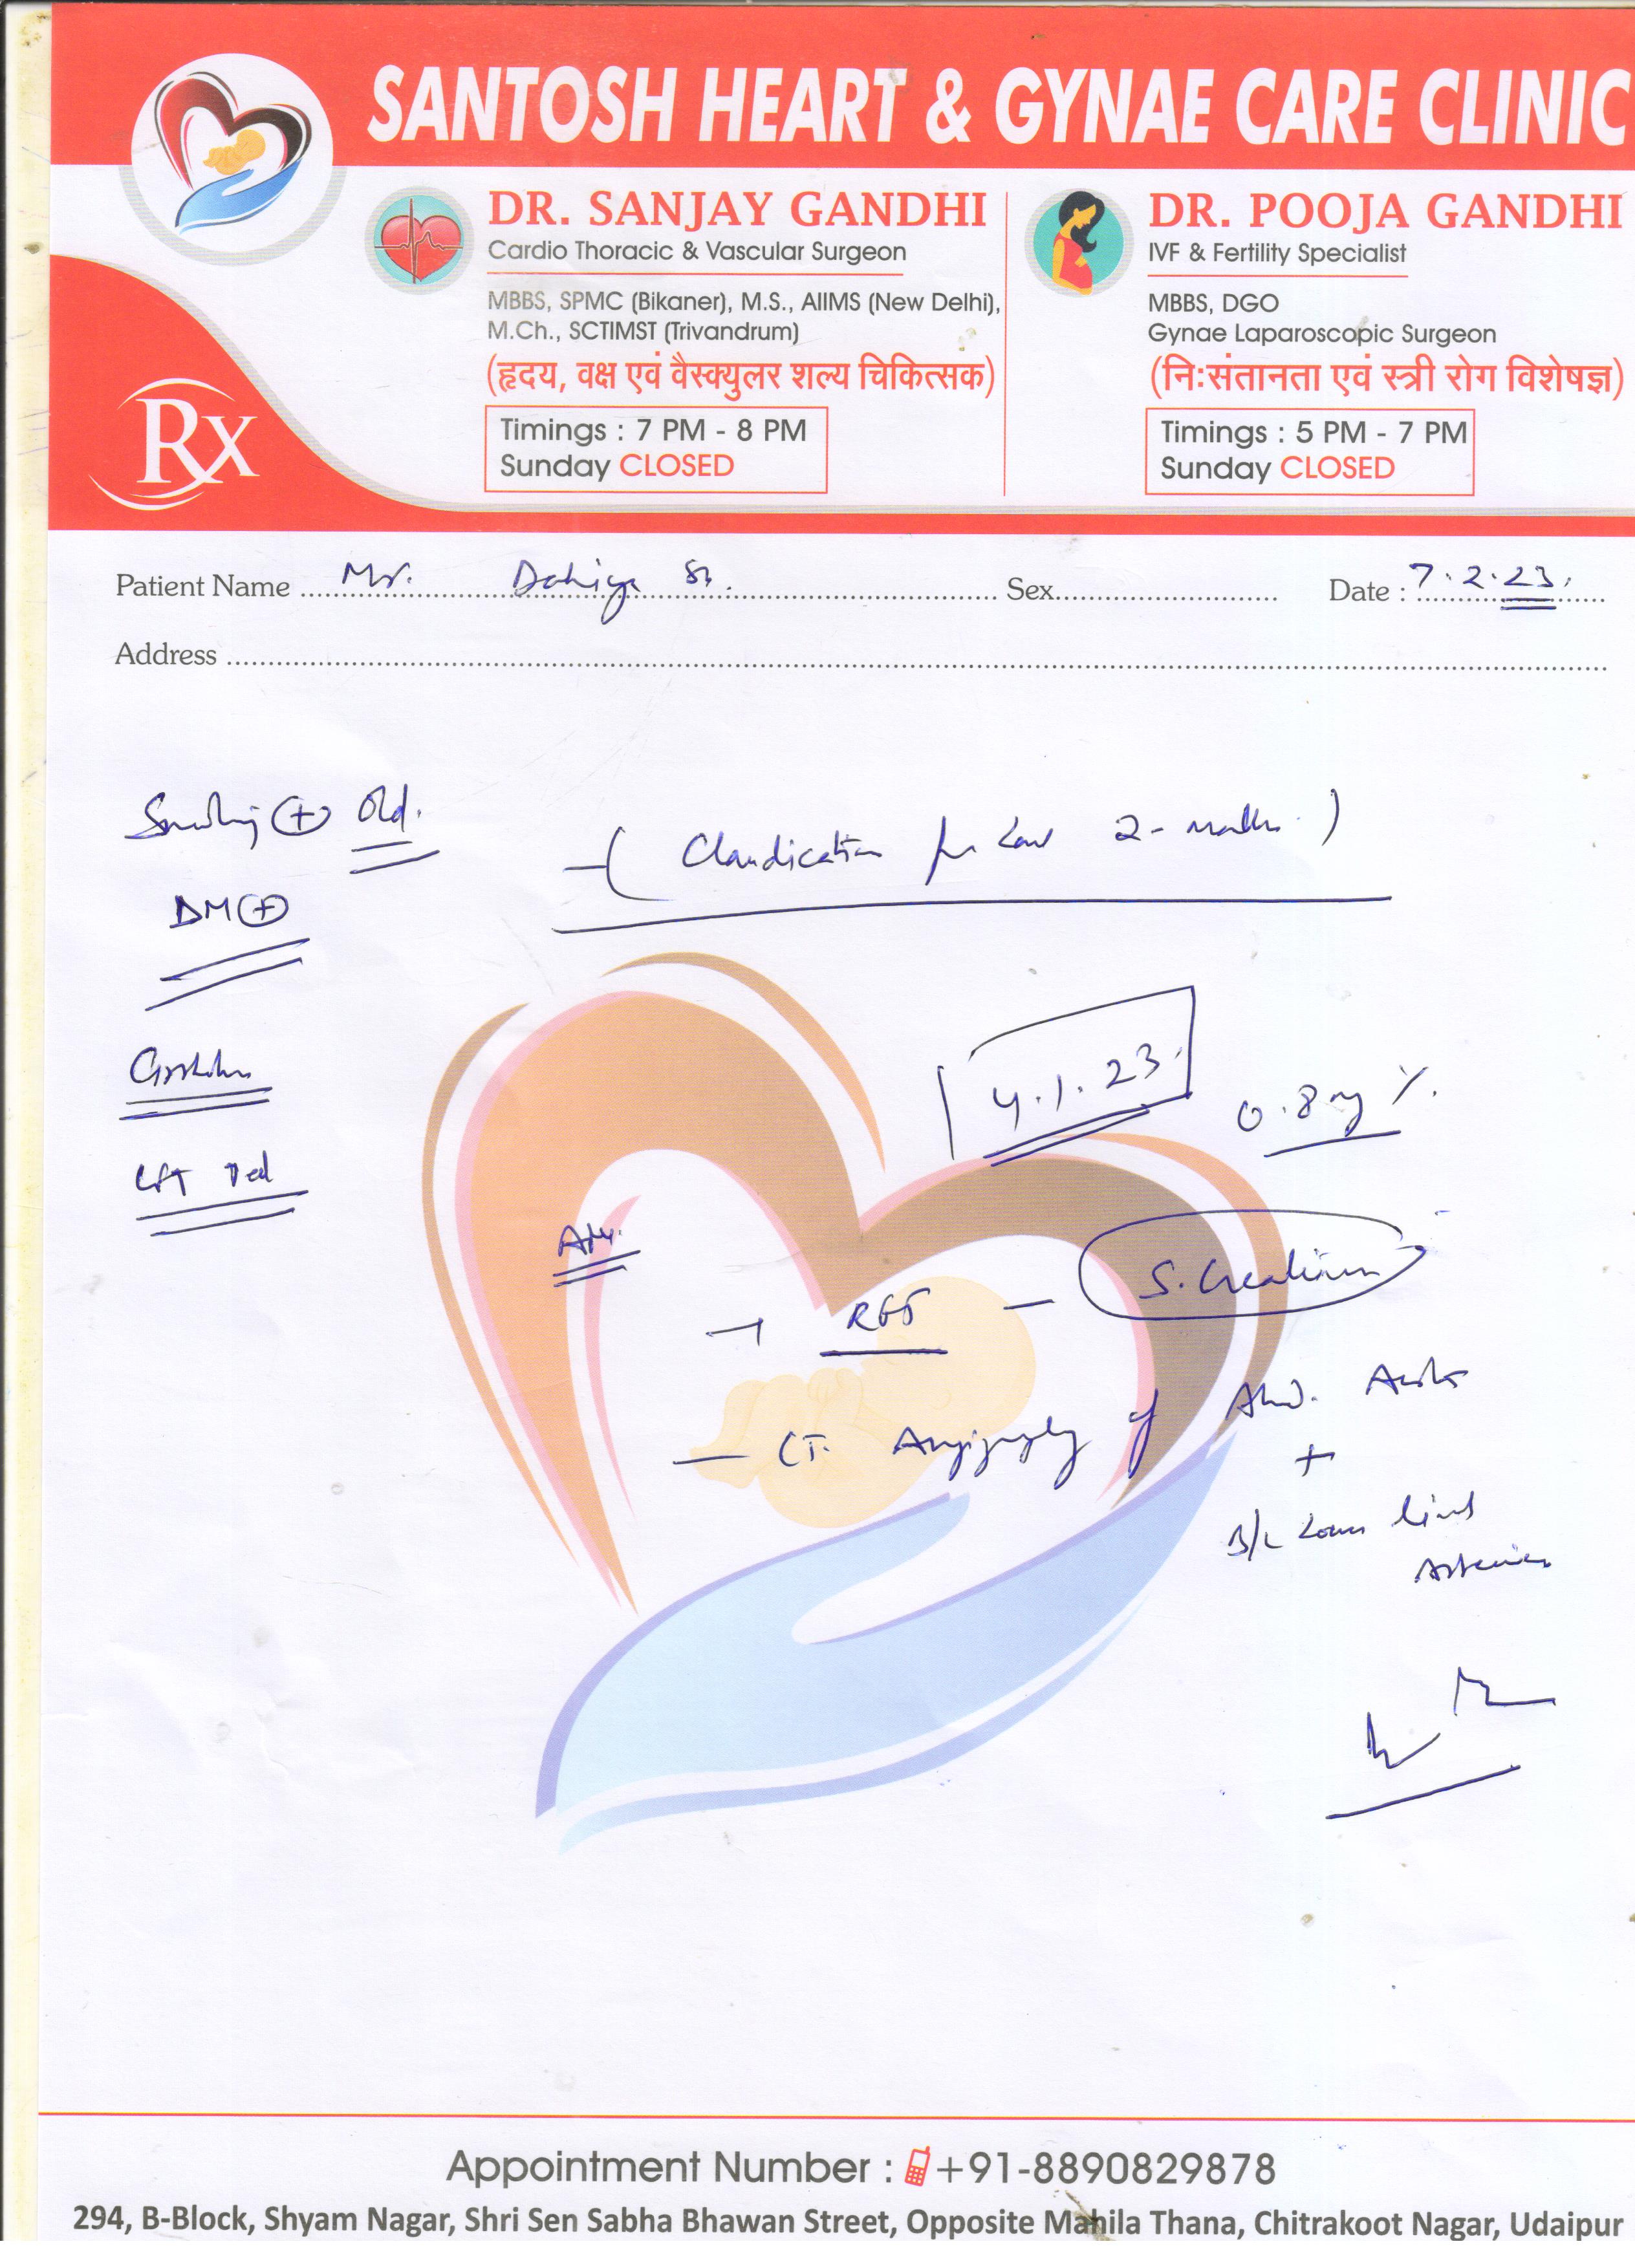 SANTOSH HEART & GYNAE CARE CLINIC
DR. SANJAY GANDHI
Cardio Thoracic & Vascular Surgeon
MBBS, SPMC (Bikaner), M.S., AIIMS (New Delhi),
M.Ch., SCTIMST (Trivandrum)
(हृदय, वक्ष एवं वैस्क्युलर शल्य चिकित्सक)
Timings : 7 PM - 8 PM
Sunday CLOSED
DR. POOJA GANDHI
IVF & Fertility Specialist
MBBS, DGO
Gynae Laparoscopic Surgeon
(निःसंतानता एवं स्त्री रोग विशेषज्ञ)
Timings : 5 PM - 7 PM
Sunday CLOSED
Rx
Patient Name Mr. Dahiya Sr. Sex Date : 7.2.23
Address
Smoking (+) Old.
(Claudication for last 2-months.)
DM (+)
4.1.23
0.8 mg %.
Adv.
RFT - S. Creatinine
- CT. Angiography of Abd. Aorta
+
B/L Lower limb
Arteries
Appointment Number : +91-8890829878
294, B-Block, Shyam Nagar, Shri Sen Sabha Bhawan Street, Opposite Mahila Thana, Chitrakoot Nagar, Udaipur